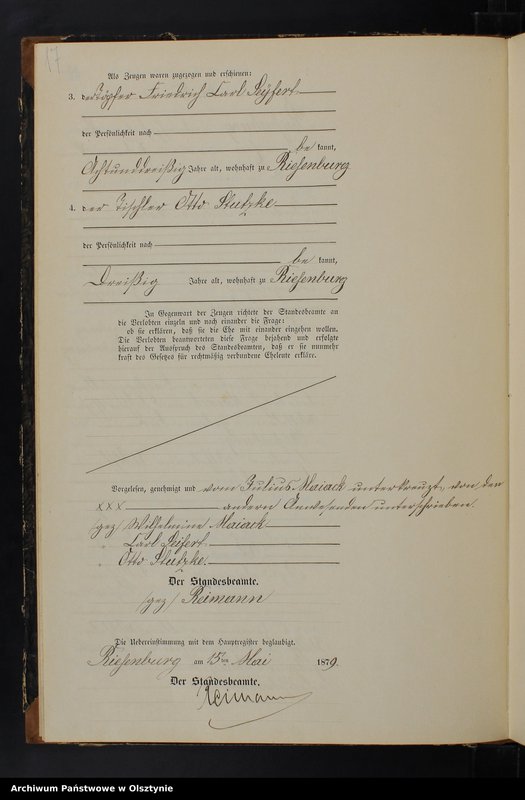 17
Als Zeugen waren zugezogen und erschienen:
3. der Töpfer Friedrich Carl Seyfert
der Persönlichkeit nach
be kannt,
Achtunddreißig Jahre alt, wohnhaft zu Riesenburg
4. der Tischler Otto Stutzke
der Persönlichkeit nach
be kannt,
Dreißig Jahre alt, wohnhaft zu Riesenburg
In Gegenwart der Zeugen richtete der Standesbeamte an
die Verlobten einzeln und nach einander die Frage:
ob sie erklären, daß sie die Ehe mit einander eingehen wollen.
Die Verlobten beantworteten diese Frage bejahend und erfolgte
hierauf der Ausspruch des Standesbeamten, daß er sie nunmehr
kraft des Gesetzes für rechtmäßig verbundene Eheleute erkläre.
Vorgelesen, genehmigt und vom Julius Maiack unterkreuzt, von den
XXX andern Anwesenden unterschrieben.
gez Wilhelmine Maiack
Carl Seifert
Otto Stutzke.
Der Standesbeamte.
/gez/ Reimann
Die Uebereinstimmung mit dem Hauptregister beglaubigt.
Riesenburg am 15ten Mai 1879.
Der Standesbeamte.
Reimann
Archiwum Państwowe w Olsztynie